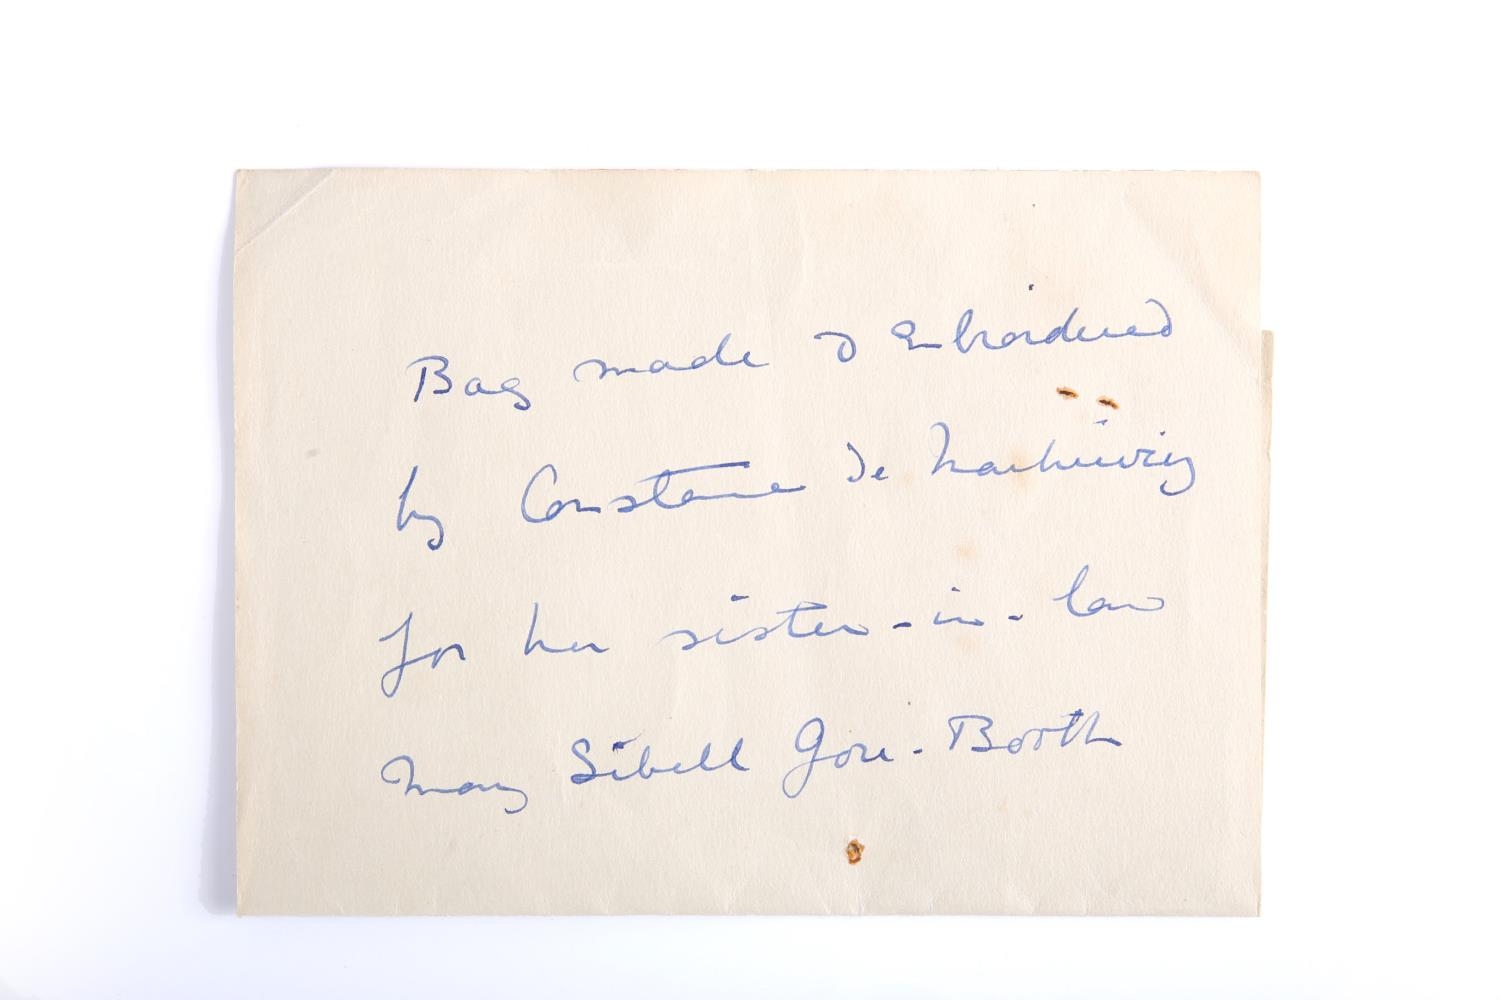 Bag made & Embroidered
by Constance de Markievicz
for her sister-in-law
Mary Sibell Gore-Booth